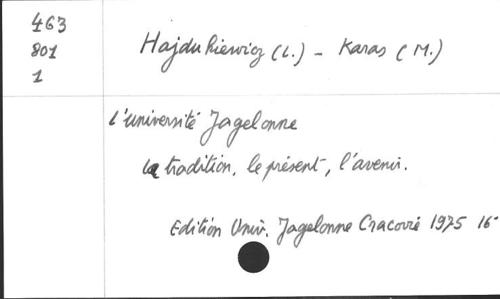 463
801
1
Hajdukiewicz (L.) - Karas (M.)
L'université Jagelonne
La tradition, le présent, l'avenir.
Edition Univ. Jagelonne Cracovie 1975 16°